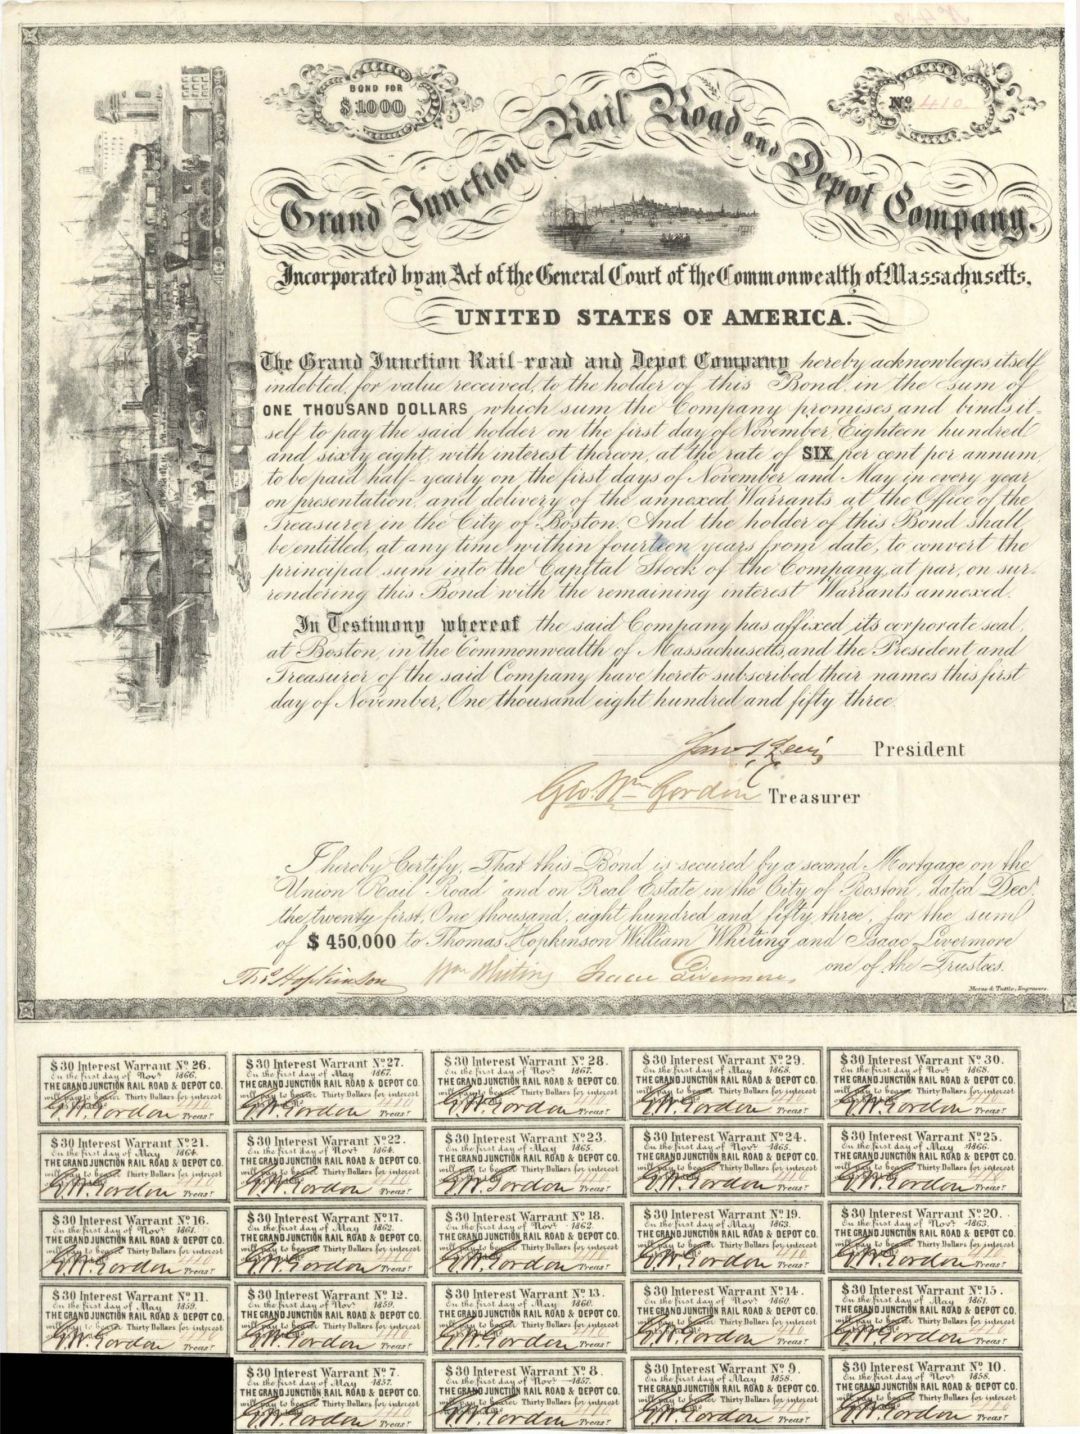 BOND FOR
$1000
Nº 410
Grand Junction Rail Road and Depot Company.
Incorporated by an Act of the General Court of the Commonwealth of Massachusetts.
UNITED STATES OF AMERICA.
The Grand Junction Rail-road and Depot Company hereby acknowleges itself
indebted, for value received, to the holder of this Bond, in the sum of
ONE THOUSAND DOLLARS which sum the Company promises and binds it-
self to pay the said holder on the first day of November Eighteen hundred
and sixty eight, with interest thereon, at the rate of SIX per cent per annum,
to be paid half-yearly on the first days of November and May in every year
on presentation and delivery of the annexed Warrants at the Office of the
Treasurer in the City of Boston. And the holder of this Bond shall
be entitled, at any time within fourteen years from date, to convert the
principal sum into the Capital Stock of the Company, at par, on sur-
rendering this Bond with the remaining interest Warrants annexed.
In Testimony whereof the said Company has affixed its corporate seal,
at Boston, in the Commonwealth of Massachusetts, and the President and
Treasurer of the said Company have hereto subscribed their names this first
day of November, One thousand eight hundred and fifty three.
President
Geo. Wm Gordon Treasurer
I hereby Certify, That this Bond is secured by a second Mortgage on the
"Union Rail Road" and on Real Estate in the City of Boston, dated Decr.
the twenty first, One thousand, eight hundred and fifty three, for the sum
of $450,000 to Thomas Hopkinson William Whiting and Isaac Livermore
one of the Trustees.
Thos Hopkinson Wm Whiting Isaac Livermore
Morse & Tuttle, Engravers.
$30 Interest Warrant Nº 26.
On the first day of Novr 1866.
THE GRAND JUNCTION RAIL ROAD & DEPOT CO.
will pay to bearer Thirty Dollars for interest
G.W. Gordon Treasr
$30 Interest Warrant Nº 27.
On the first day of May 1867.
THE GRAND JUNCTION RAIL ROAD & DEPOT CO.
will pay to bearer Thirty Dollars for interest
410
G.W. Gordon Treasr
$30 Interest Warrant Nº 28.
On the first day of Novr 1867.
THE GRAND JUNCTION RAIL ROAD & DEPOT CO.
will pay to bearer Thirty Dollars for interest
410
G.W. Gordon Treasr
$30 Interest Warrant Nº 29.
On the first day of May 1868.
THE GRAND JUNCTION RAIL ROAD & DEPOT CO.
will pay to bearer Thirty Dollars for interest
410
G.W. Gordon Treasr
$30 Interest Warrant Nº 30.
On the first day of Novr 1868.
THE GRAND JUNCTION RAIL ROAD & DEPOT CO.
will pay to bearer Thirty Dollars for interest
410
G.W. Gordon Treasr
$30 Interest Warrant Nº 21.
On the first day of May 1864.
THE GRAND JUNCTION RAIL ROAD & DEPOT CO.
will pay to bearer Thirty Dollars for interest
G.W. Gordon Treasr
$30 Interest Warrant Nº 22.
On the first day of Novr 1864.
THE GRAND JUNCTION RAIL ROAD & DEPOT CO.
will pay to bearer Thirty Dollars for interest
410
G.W. Gordon Treasr
$30 Interest Warrant Nº 23.
On the first day of May 1865.
THE GRAND JUNCTION RAIL ROAD & DEPOT CO.
will pay to bearer Thirty Dollars for interest
410
G.W. Gordon Treasr
$30 Interest Warrant Nº 24.
On the first day of Novr 1865.
THE GRAND JUNCTION RAIL ROAD & DEPOT CO.
will pay to bearer Thirty Dollars for interest
410
G.W. Gordon Treasr
$30 Interest Warrant Nº 25.
On the first day of May 1866.
THE GRAND JUNCTION RAIL ROAD & DEPOT CO.
will pay to bearer Thirty Dollars for interest
410
G.W. Gordon Treasr
$30 Interest Warrant Nº 16.
On the first day of Novr 1861.
THE GRAND JUNCTION RAIL ROAD & DEPOT CO.
will pay to bearer Thirty Dollars for interest
G.W. Gordon Treasr
$30 Interest Warrant Nº 17.
On the first day of May 1862.
THE GRAND JUNCTION RAIL ROAD & DEPOT CO.
will pay to bearer Thirty Dollars for interest
410
G.W. Gordon Treasr
$30 Interest Warrant Nº 18.
On the first day of Novr 1862.
THE GRAND JUNCTION RAIL ROAD & DEPOT CO.
will pay to bearer Thirty Dollars for interest
410
G.W. Gordon Treasr
$30 Interest Warrant Nº 19.
On the first day of May 1863.
THE GRAND JUNCTION RAIL ROAD & DEPOT CO.
will pay to bearer Thirty Dollars for interest
410
G.W. Gordon Treasr
$30 Interest Warrant Nº 20.
On the first day of Novr 1863.
THE GRAND JUNCTION RAIL ROAD & DEPOT CO.
will pay to bearer Thirty Dollars for interest
410
G.W. Gordon Treasr
$30 Interest Warrant Nº 11.
On the first day of May 1859.
THE GRAND JUNCTION RAIL ROAD & DEPOT CO.
will pay to bearer Thirty Dollars for interest
G.W. Gordon Treasr
$30 Interest Warrant Nº 12.
On the first day of Novr 1859.
THE GRAND JUNCTION RAIL ROAD & DEPOT CO.
will pay to bearer Thirty Dollars for interest
410
G.W. Gordon Treasr
$30 Interest Warrant Nº 13.
On the first day of May 1860.
THE GRAND JUNCTION RAIL ROAD & DEPOT CO.
will pay to bearer Thirty Dollars for interest
410
G.W. Gordon Treasr
$30 Interest Warrant Nº 14.
On the first day of Novr 1860.
THE GRAND JUNCTION RAIL ROAD & DEPOT CO.
will pay to bearer Thirty Dollars for interest
410
G.W. Gordon Treasr
$30 Interest Warrant Nº 15.
On the first day of May 1861.
THE GRAND JUNCTION RAIL ROAD & DEPOT CO.
will pay to bearer Thirty Dollars for interest
410
G.W. Gordon Treasr
$30 Interest Warrant Nº 7.
On the first day of May 1857.
THE GRAND JUNCTION RAIL ROAD & DEPOT CO.
will pay to bearer Thirty Dollars for interest
410
G.W. Gordon Treasr
$30 Interest Warrant Nº 8.
On the first day of Novr 1857.
THE GRAND JUNCTION RAIL ROAD & DEPOT CO.
will pay to bearer Thirty Dollars for interest
410
G.W. Gordon Treasr
$30 Interest Warrant Nº 9.
On the first day of May 1858.
THE GRAND JUNCTION RAIL ROAD & DEPOT CO.
will pay to bearer Thirty Dollars for interest
410
G.W. Gordon Treasr
$30 Interest Warrant Nº 10.
On the first day of Novr 1858.
THE GRAND JUNCTION RAIL ROAD & DEPOT CO.
will pay to bearer Thirty Dollars for interest
410
G.W. Gordon Treasr